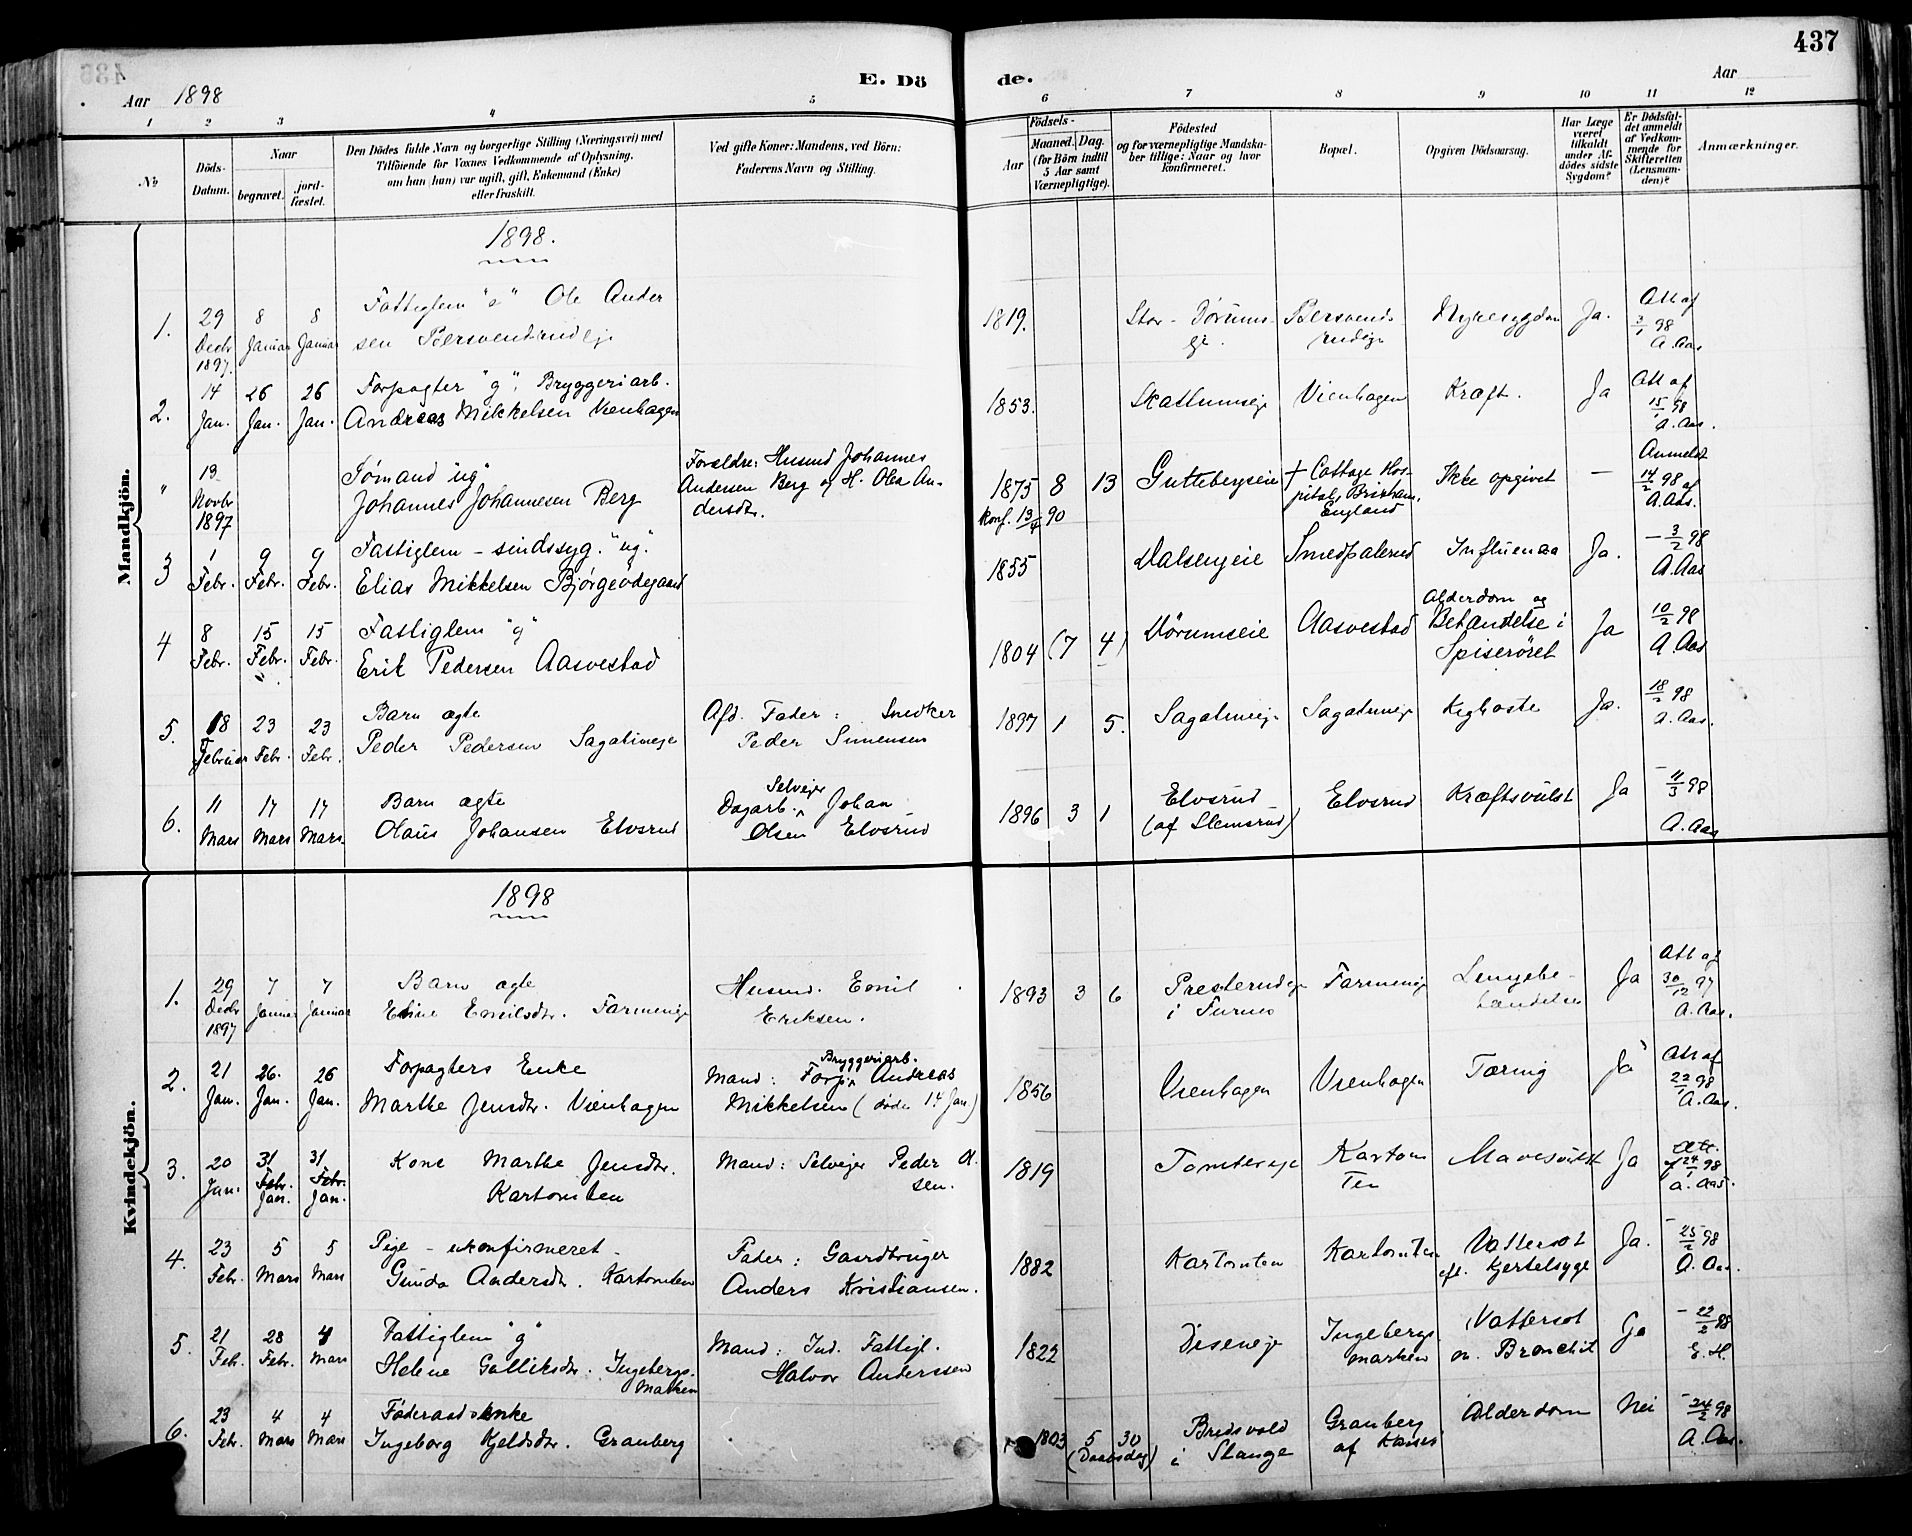 437
Aar 1898
E. Dö
de.
Aar
1 2 3 4 5 6 7 8 9 10 11 12
No
Döds-
Datum.
Naar
begravet.
jord-
fæstet.
Den Dödes fulde Navn og borgerlige Stilling (Næringsvei) med
Tilföiende for Voxnes Vedkommende af Oplysning,
om han (hun) var ugift, gift, Enkemand (Enke)
eller fraskilt.
Ved gifte Koner: Mandens, ved Börn:
Faderens Navn og Stilling.
Födsels-
Aar
Maaned.
Dag.
(for Börn indtil
5 Aar samt
Værnepligtige).
Födested
og for værnepligtige Mandska-
ber tillige: Naar og hvor
konfirmeret.
Bopæl.
Opgiven Dödsaarsag.
Har Læge
været
tilkaldt
under Af-
dödes sidste
Sygdom?
Er Dödsfal-
det anmeldt
af Vedkom-
mende for
Skifteretten
(Lensman-
den)?
Anmærkninger.
Mandkjön.
1898.
1. 29 Decbr 1897. 8 Januar 8 Januar
Fattiglem "e" Ole Ander
sen
1819.
Ja.
Att af
3/1 98
A. Aas
2. 14 Jan. 26 Jan. 26 Jan.
Forpagter "g", Bryggeriarb.
Andreas Mikkelsen Vienhagen
1853.
Skattumseje
Vienhagen
Kræft.
Ja
Att af
15/1 98
A. Aas.
" 13 Novbr 1897
Sømand "ug"
Johannes Johannesen Berg
Forældre: Husmd Johannes
Andersen Berg og H. Olea An-
dersdtr.
1875 8 13
Konf. 13/4 90
Guttebergseie
+ Cottage Hos-
pital, Brixham,
England
Ikke opgivet
—
Anmeldt
14/2 98 af
A. Aas.
3 1 Febr. 9 Febr. 9 Febr.
Fattiglem - sindssyg. "ug".
Elias Mikkelsen Bjørgeødegaard
1855
Dalsengeie
Influenza
Ja.
- 3/2 98
A. Aas
4 8 Febr. 15 Febr. 15 Febr.
Fattiglem "g"
Erik Pedersen Aasvestad
1804 (7 4)
Dørumseie
Aasvestad
Alderdom og
Betændelse i
Spiserøret
Ja
10/2 98
A. Aas
5. 18 Februar 23 Febr. 23 Febr.
Barn ægte
Peder Pedersen Sagatuneje
Afd. Fader: Snedker
Peder Simensen
1897 1 5.
Sagatuneje
Sagatuneje
Kighoste
Ja.
18/2 98
A. Aas.
6. 11 Mars 17 Mars 17 Mars
Barn ægte
Olaus Johansen Elvsrud
Selvejer
Dagarb. Johan
Olsen Elvsrud
1896 3 1
Elvsrud
(af Slemsrud)
Elvsrud
Kræftsvulst
Ja
- 11/3 98
A. Aas
Kvindekjön.
1898
1. 29 Decbr 1897 7 Januar 7 Januar
Barn ægte
Eline Emilsdtr. Farmeneje
Husmd. Emil
Eriksen.
1893 3 6
Presterudeje
i Furnes
Farmeneje
Lungebe-
tændelse
Ja
Att af
30/12 97
A. Aas.
2. 21 Jan. 26. Jan. 26 Jan.
Forpagters Enke
Marthe Jensdtr. Vienhagen
Bryggeriarb.
Mand: Forp. Andreas
Mikkelsen (døde 14 Jan)
1856
Vienhagen
Vienhagen
Tæring
Ja
Att af
22/1 98
A. Aas.
3. 20 Jan. 31 Febr. Jan. 31 Febr. Jan.
Kone Marthe Jensdtr.
Kartomten
Mand: Selvejer Peder A.
sen.
1819
Tomtereje
Kartom
ten
Mavesvulst
Ja
Att.
af 24/1 98
A. Aas.
4. 23 Febr. 5 Mars 5 Mars
Pige - ukonfirmeret -
Gunda Andersdtr. Kartomten
Fader: Gaardbruger
Anders Kristiansen.
1882
Kartomten
Kartomten
Vattersot
eft. Kjertelsyge
Ja.
- 25/2 98
A. Aas.
5. 21 Feb. 28 Febr. 4 Mars
Fattiglem "g"
Helene Gulliksdtr. Ingebergs-
marken
Mand: Ind. Fattigl.
Halvor Anderssen
1822
Diseneje
Ingebergs-
marken
Vattersot
m. Bronchit
Ja
- 22/2 98
E. H.
6. 23 Febr. 4 Mars 4 Mars
Føderaadsenke
Ingeborg Kjeldsdtr. Granberg
1803 5 30
(Daabsdag)
Bredsvold
i Stange
Granberg
af Kaises
Alderdom
Nei
- 24/2 98
A. Aas.